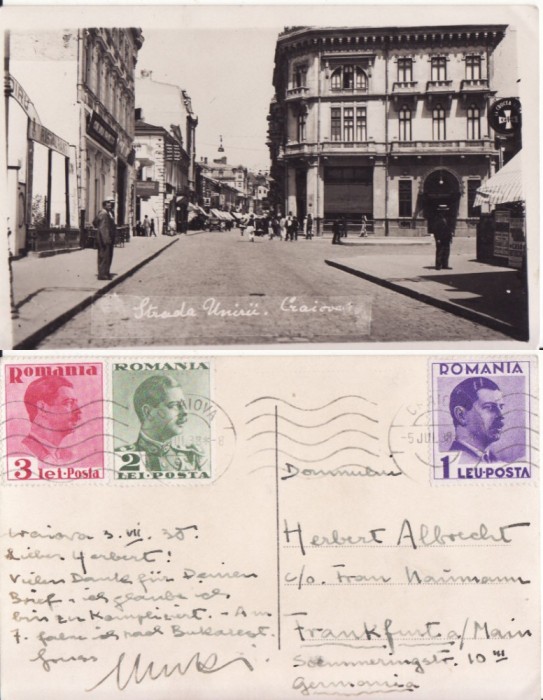 Strada Unirii. Craiova
Romania
3 lei-Posta
ROMANIA
2
LEI-POSTA
ROMANIA
1 LEU-POSTA
CRAIOVA
-5 JUL.
Craiova 3. VII. 38.
Lieber Herbert!
Vielen Dank für Deinen
Brief. ich glaube ich
bin zu kompliziert. - Am
7. fahre ich nach Bukarest.
Gruss
Domnului
Herbert Albrecht
c/o. Frau Naumann
Frankfurt a/Main
Soemmeringstr. 10 III
Germania